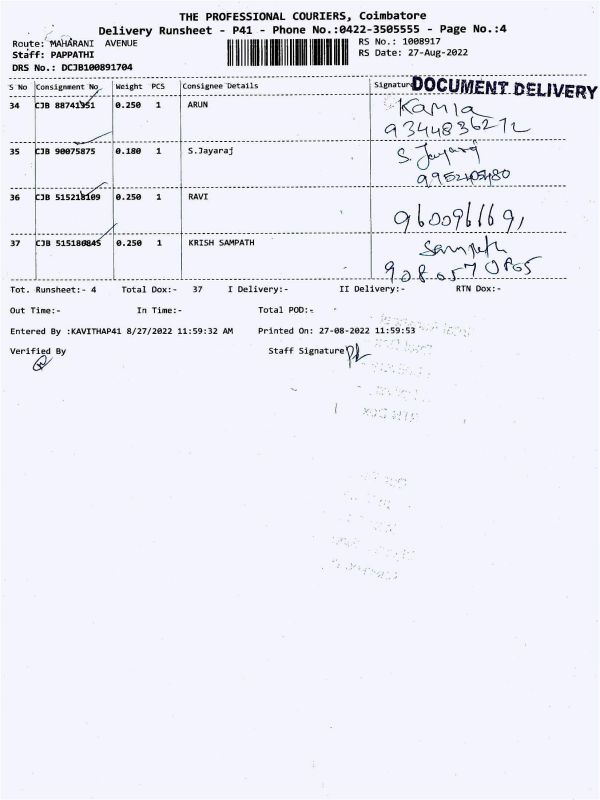 THE PROFESSIONAL COURIERS, Coimbatore
Delivery Runsheet - P41 - Phone No.:0422-3505555 - Page No.:4
Route: MAHARANI AVENUE
RS No.: 1008917
Staff: PAPPATHI
RS Date: 27-Aug-2022
DRS No.: DCJB100891704
S No Consignment No Weight PCS Consignee Details Signature
DOCUMENT DELIVERY
34 CJB 88741951 0.250 1 ARUN Kamla
9344836272
35 CJB 90075875 0.180 1 S.Jayaraj S. Jayaraj
36 CJB 515218109 0.250 1 RAVI
37 CJB 515180845 0.250 1 KRISH SAMPATH Sampath
Tot. Runsheet:- 4 Total Dox:- 37 I Delivery:- II Delivery:- RTN Dox:-
Out Time:- In Time:- Total POD:-
Entered By :KAVITHAP41 8/27/2022 11:59:32 AM Printed On: 27-08-2022 11:59:53
Verified By Staff Signature